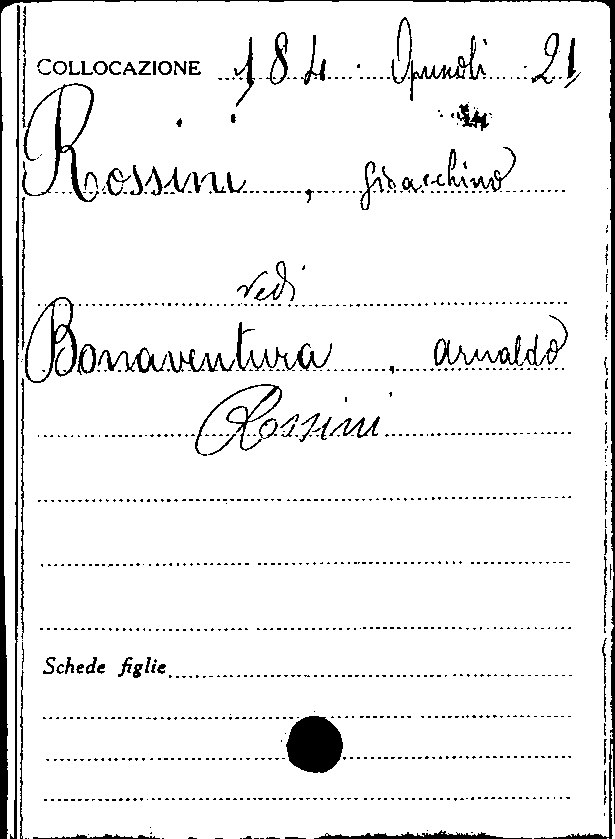 COLLOCAZIONE 184. Opuscoli 21
Rossini, Gioacchino
vedi
Bonaventura, Arnaldo
Rossini
Schede figlie